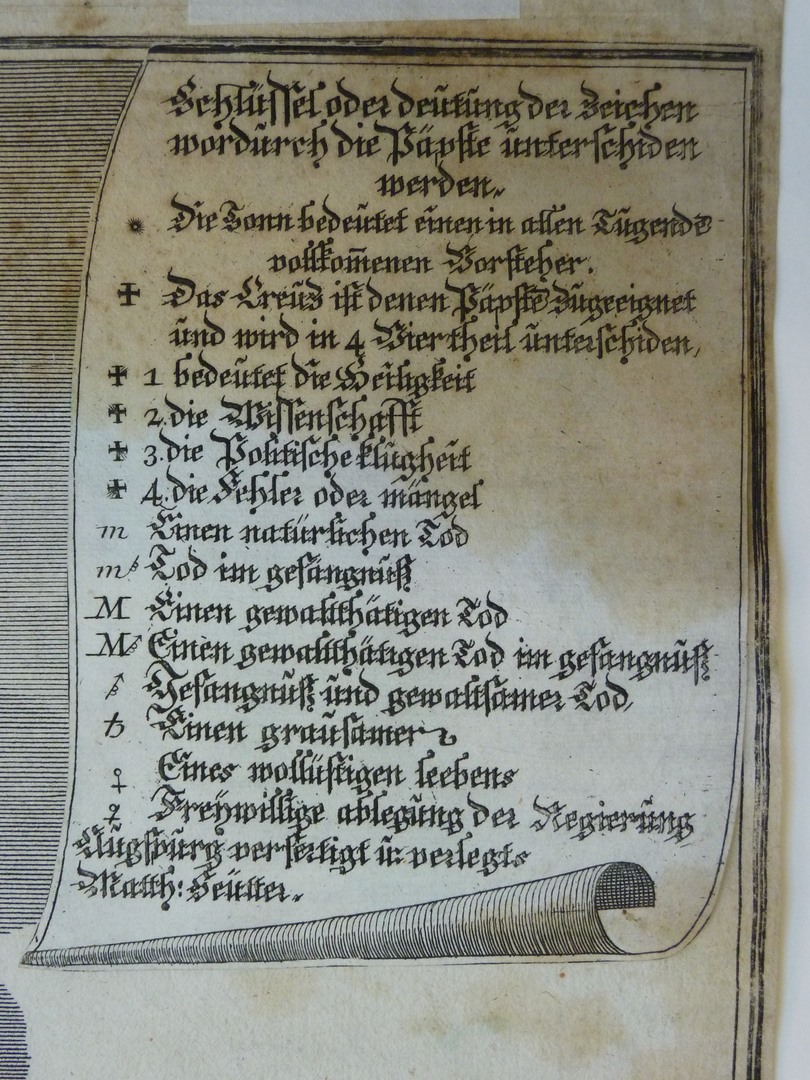 Schlüssel oder deütüng der Zeichen
wordürch die Päpste ünterschiden
werden.
☀ Die Sonn bedeütet einen in allen Tügendē
vollkom̄enen Vorsteher.
✠ Das Creüz ist denen Päpstē Zügeeignet
ünd wird in 4 Viertheil ünterschiden,
✠ 1 bedeütet die Heiligkeit
✠ 2. die Wissenschafft
✠ 3. die Politische klügheit
✠ 4. die Fehler oder mängel
m Einen natürlichen Tod
m♂ Tod im gefängnüß
M Einen gewaltthätigen Tod
M♂ Einen gewaltthätigen Tod im gefängnüß
♂ Gefängnüß ünd gewaltsamer Tod,
♄ Einen graüsamen
♀ Eines wollüstigen leebens
☿ Freÿwillige ablegüng der Regierüng
Aügspürg verfertigt ü: verlegts
Matth: Seütter.